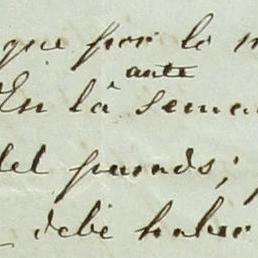 que por lo
ante
En là sema
del pasado;
debe haber